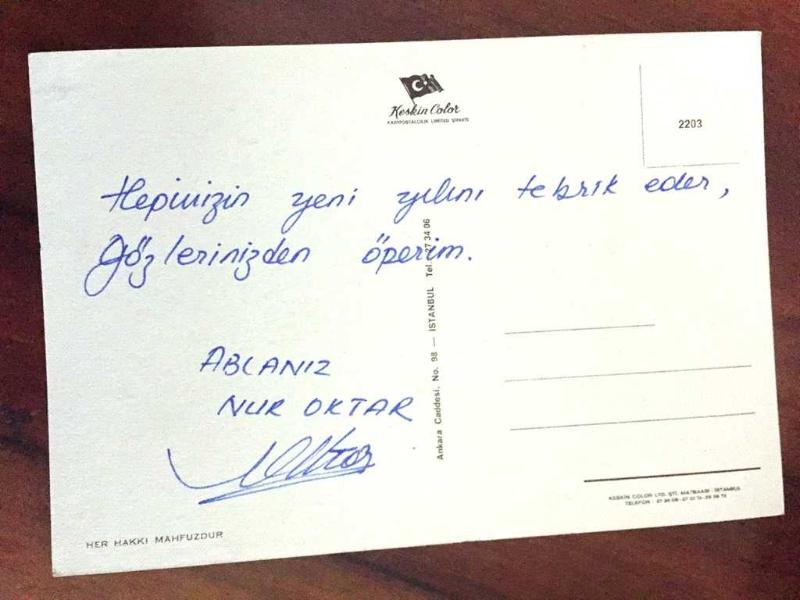 Keskin Color
KARTPOSTALCILIK LIMITED ŞİRKETİ
2203
Hepinizin yeni yılını tebrik eder,
Gözlerinizden öperim.
ABLANIZ
NUR OKTAR
Ankara Caddesi, No. 98 — İSTANBUL Tel. 27 34 06
KESKİN COLOR LTD. ŞTİ. MATBAASI - İSTANBUL
TELEFON :
HER HAKKI MAHFUZDUR